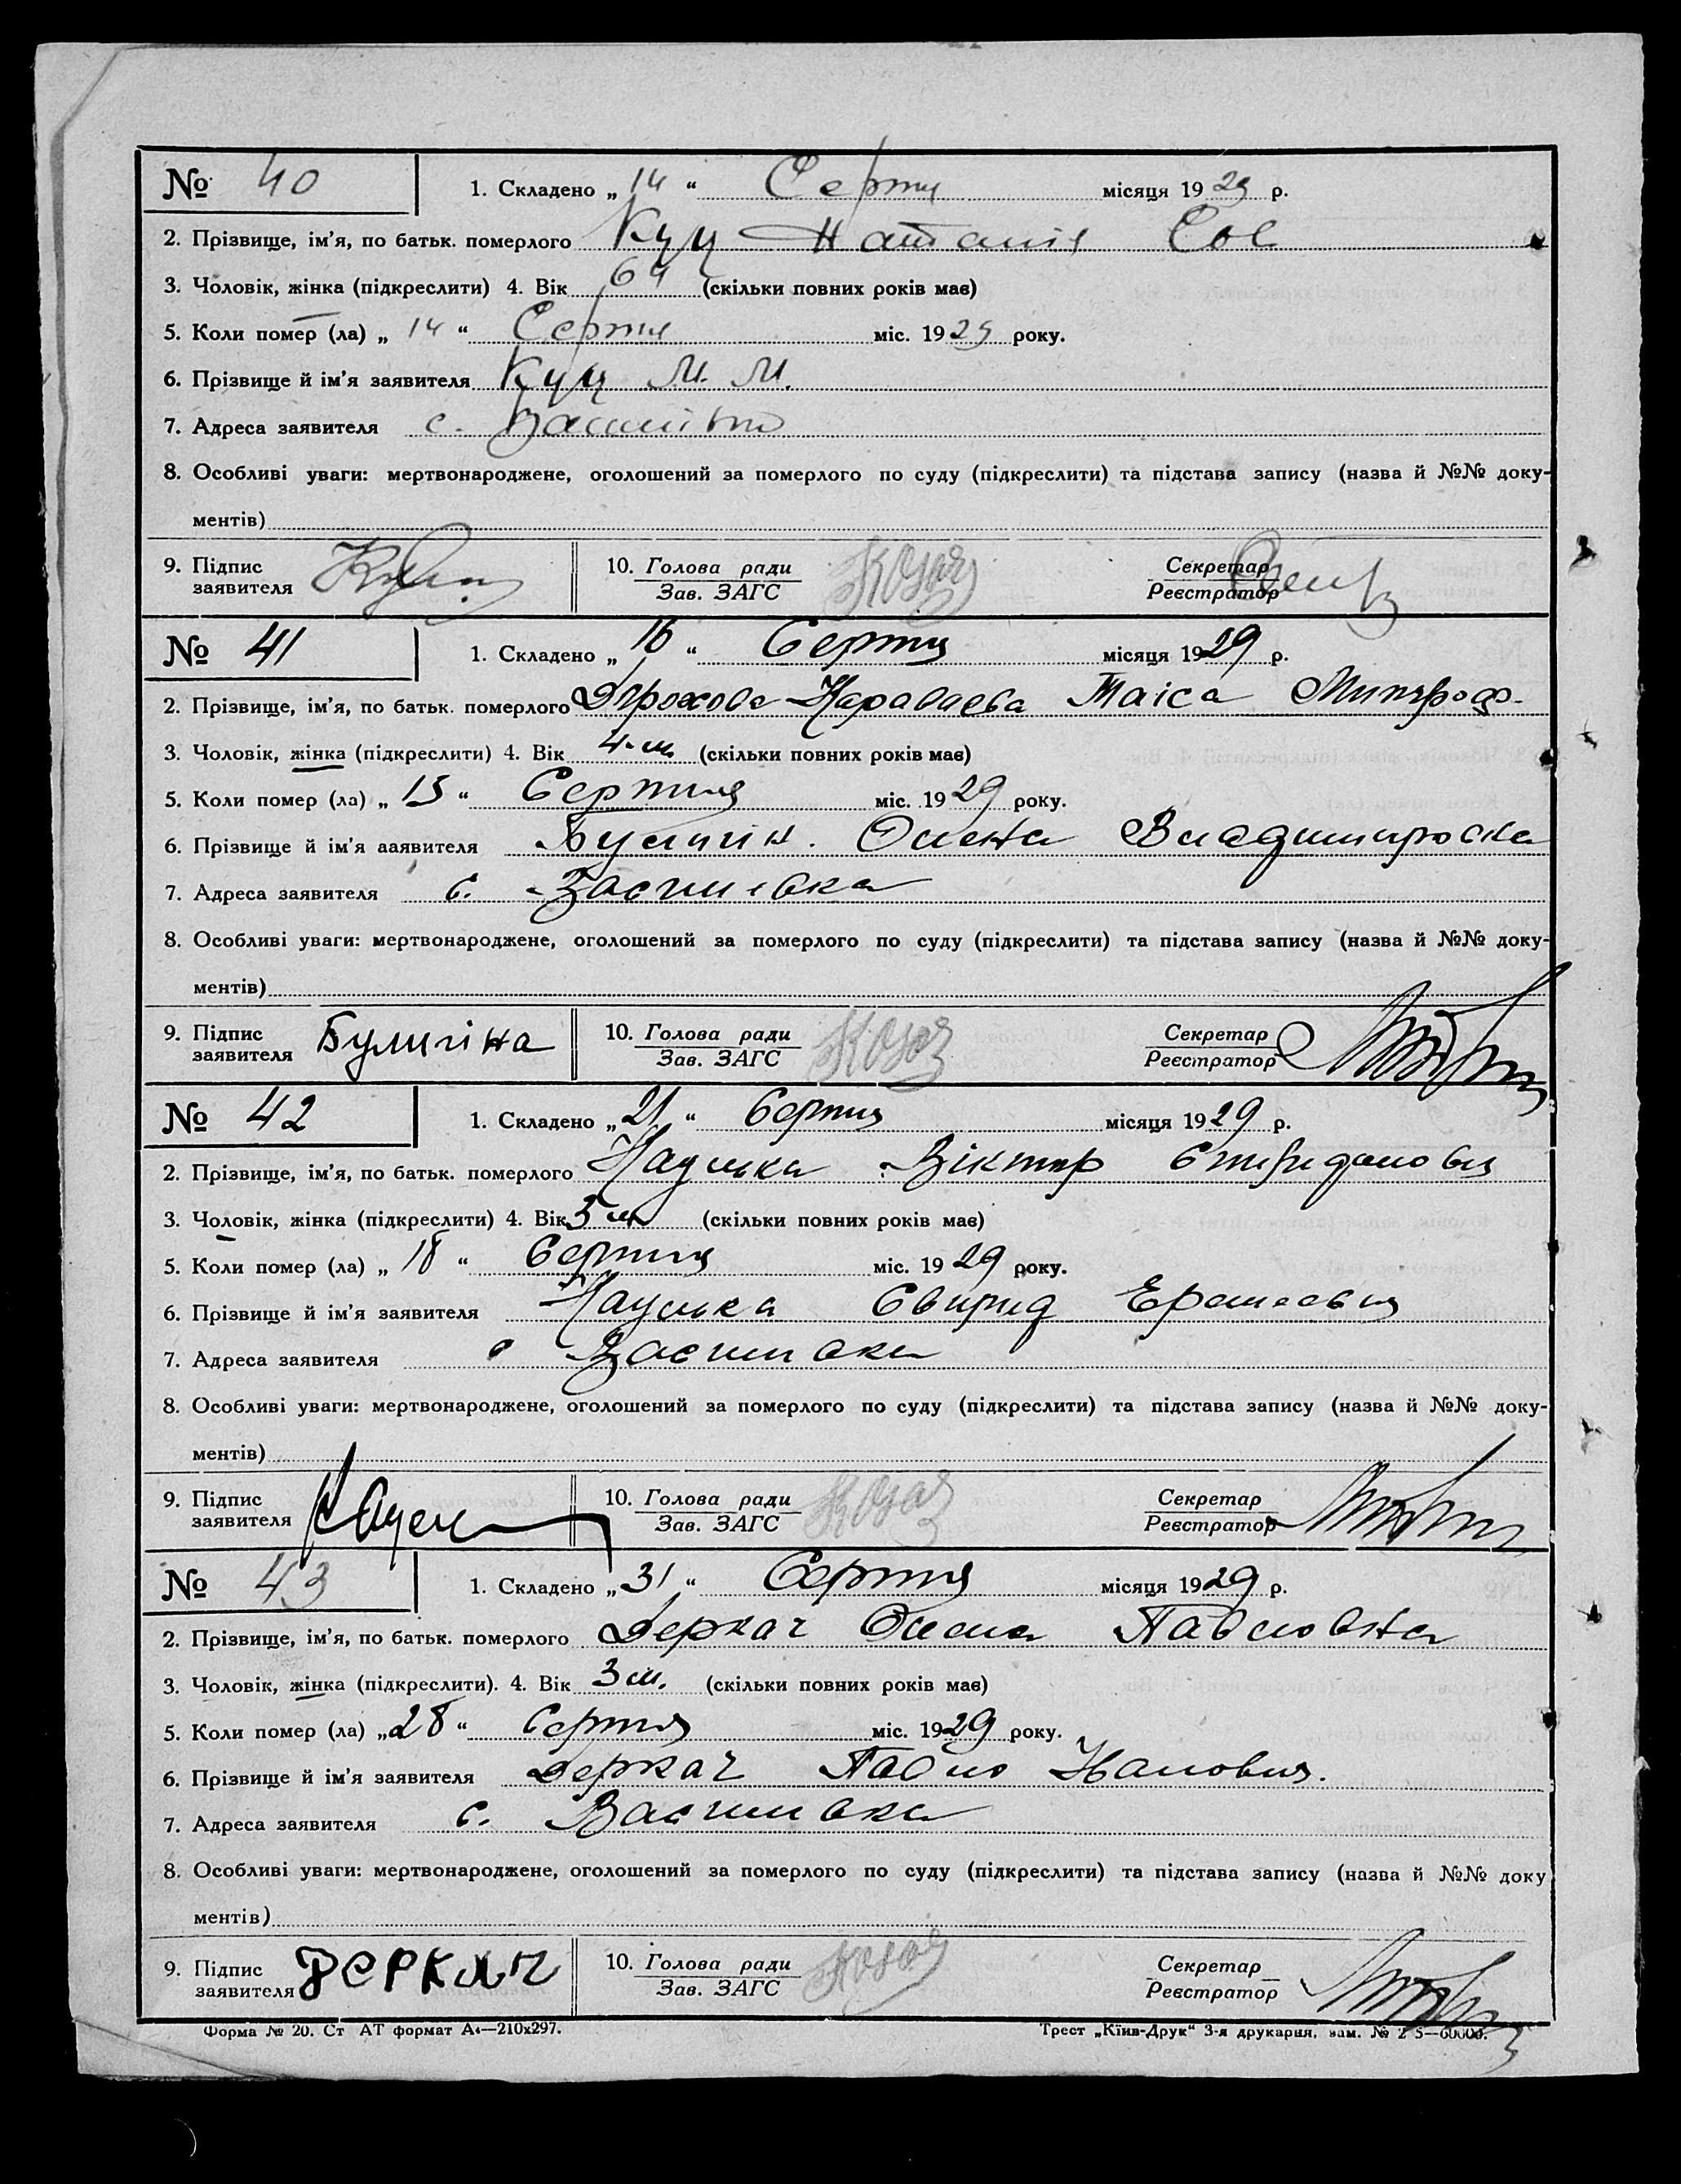 № 40 1. Складено „ 14 “ Серпня місяця 1929 р.
2. Прізвище, ім’я, по батьк. померлого Куц Наталія
3. Чоловік, жінка (підкреслити) 4. Вік 64 (скільки повних років має)
5. Коли помер (ла) „ 14 “ Серпня міс. 1929 року.
6. Прізвище й ім’я заявителя Куц М. М.
7. Адреса заявителя с. Василівка
8. Особливі уваги: мертвонароджене, оголошений за померлого по суду (підкреслити) та підстава запису (назва й №№ доку-
ментів)
9. Підпис 10. Голова ради Секретар
заявителя Зав. ЗАГС Реєстратор
№ 41 1. Складено „ 16 “ Серпня місяця 1929 р.
2. Прізвище, ім’я, по батьк. померлого Караваева Таіса Митроф.
3. Чоловік, жінка (підкреслити) 4. Вік 4 м (скільки повних років має)
5. Коли помер (ла) „ 15 “ Серпня міс. 1929 року.
6. Прізвище й ім’я заявителя Олена
7. Адреса заявителя с. Василівка
8. Особливі уваги: мертвонароджене, оголошений за померлого по суду (підкреслити) та підстава запису (назва й №№ доку-
ментів)
9. Підпис Булигіна 10. Голова ради Секретар
заявителя Зав. ЗАГС Реєстратор
№ 42 1. Складено „ 21 “ Серпня місяця 1929 р.
2. Прізвище, ім’я, по батьк. померлого Віктор
3. Чоловік, жінка (підкреслити) 4. Вік (скільки повних років має)
5. Коли помер (ла) „ 18 “ Серпня міс. 1929 року.
6. Прізвище й ім’я заявителя Свирид
7. Адреса заявителя с Василівка
8. Особливі уваги: мертвонароджене, оголошений за померлого по суду (підкреслити) та підстава запису (назва й №№ доку-
ментів)
9. Підпис 10. Голова ради Секретар
заявителя Зав. ЗАГС Реєстратор
№ 43 1. Складено „ 31 “ Серпня місяця 1929 р.
2. Прізвище, ім’я, по батьк. померлого Деркач Олена Павловна
3. Чоловік, жінка (підкреслити). 4. Вік 3 м. (скільки повних років має)
5. Коли помер (ла) „ 28 “ Серпня міс. 1929 року.
6. Прізвище й ім’я заявителя Деркач Павло
7. Адреса заявителя с. Василівка
8. Особливі уваги: мертвонароджене, оголошений за померлого по суду (підкреслити) та підстава запису (назва й №№ доку
ментів)
9. Підпис ДЕРКАЧ 10. Голова ради Секретар
заявителя Зав. ЗАГС Реєстратор
Форма № 20. Ст АТ формат А4—210х297. Трест „Київ-Друк“ 3-я друкарня, зам. №